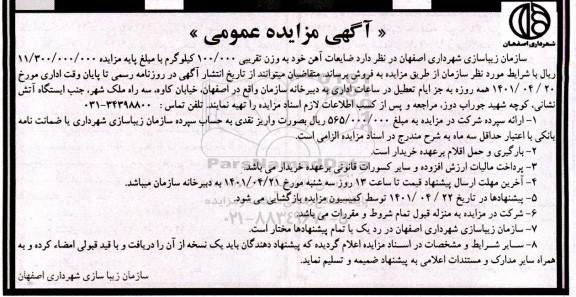 « آگهی مزایده عمومی »
شهرداری اصفهان
سازمان زیباسازی شهرداری اصفهان در نظر دارد ضایعات آهن خود به وزن تقریبی ۱۰۰/۰۰۰ کیلوگرم با مبلغ پایه مزایده ۱۱/۳۰۰/۰۰۰/۰۰۰
ریال با شرایط مورد نظر سازمان از طریق مزایده به فروش برساند. متقاضیان میتوانند از تاریخ انتشار آگهی در روزنامه رسمی تا پایان وقت اداری مورخ
۲۰ / ۰۴ / ۱۴۰۱ همه روزه به جز ایام تعطیل در ساعات اداری به دبیرخانه سازمان واقع در اصفهان، خیابان کاوه، سه راه ملک شهر، جنب ایستگاه آتش
نشانی، کوچه شهید جوراب دوز، مراجعه و پس از کسب اطلاعات لازم اسناد مزایده را تهیه نمایند. تلفن تماس : ۳۴۳۹۸۸۰۰-۰۳۱
۱- ارائه سپرده شرکت در مزایده به مبلغ ۵۶۵/۰۰۰/۰۰۰ ریال بصورت واریز نقدی به حساب سپرده سازمان زیباسازی شهرداری یا ضمانت نامه
بانکی با اعتبار حداقل سه ماه به شرح مندرج در اسناد مزایده الزامی است.
۲- بارگیری و حمل اقلام برعهده خریدار است.
۳- پرداخت مالیات ارزش افزوده و سایر کسورات قانونی برعهده خریدار می باشد.
۴- آخرین مهلت ارسال پیشنهاد قیمت تا ساعت ۱۳ روز سه شنبه مورخ ۱۴۰۱/۰۴/۲۱ به دبیرخانه سازمان میباشد.
۵- پیشنهادها در تاریخ ۲۲ / ۰۴ / ۱۴۰۱ توسط کمیسیون مزایده بازگشایی می شود.
۶- شرکت در مزایده به منزله قبول تمام شروط و مقررات می باشد.
۷- سازمان زیباسازی شهرداری اصفهان در رد یک یا تمام پیشنهادها مختار است.
۸- سایر شرایط و مشخصات در اسناد مزایده اعلام گردیده که پیشنهاد دهندگان باید یک نسخه از آن را دریافت و با قید قبولی امضاء کرده و به
همراه سایر مدارک و مستندات اعلامی به پیشنهاد ضمیمه و تسلیم نماید.
سازمان زیبا سازی شهرداری اصفهان